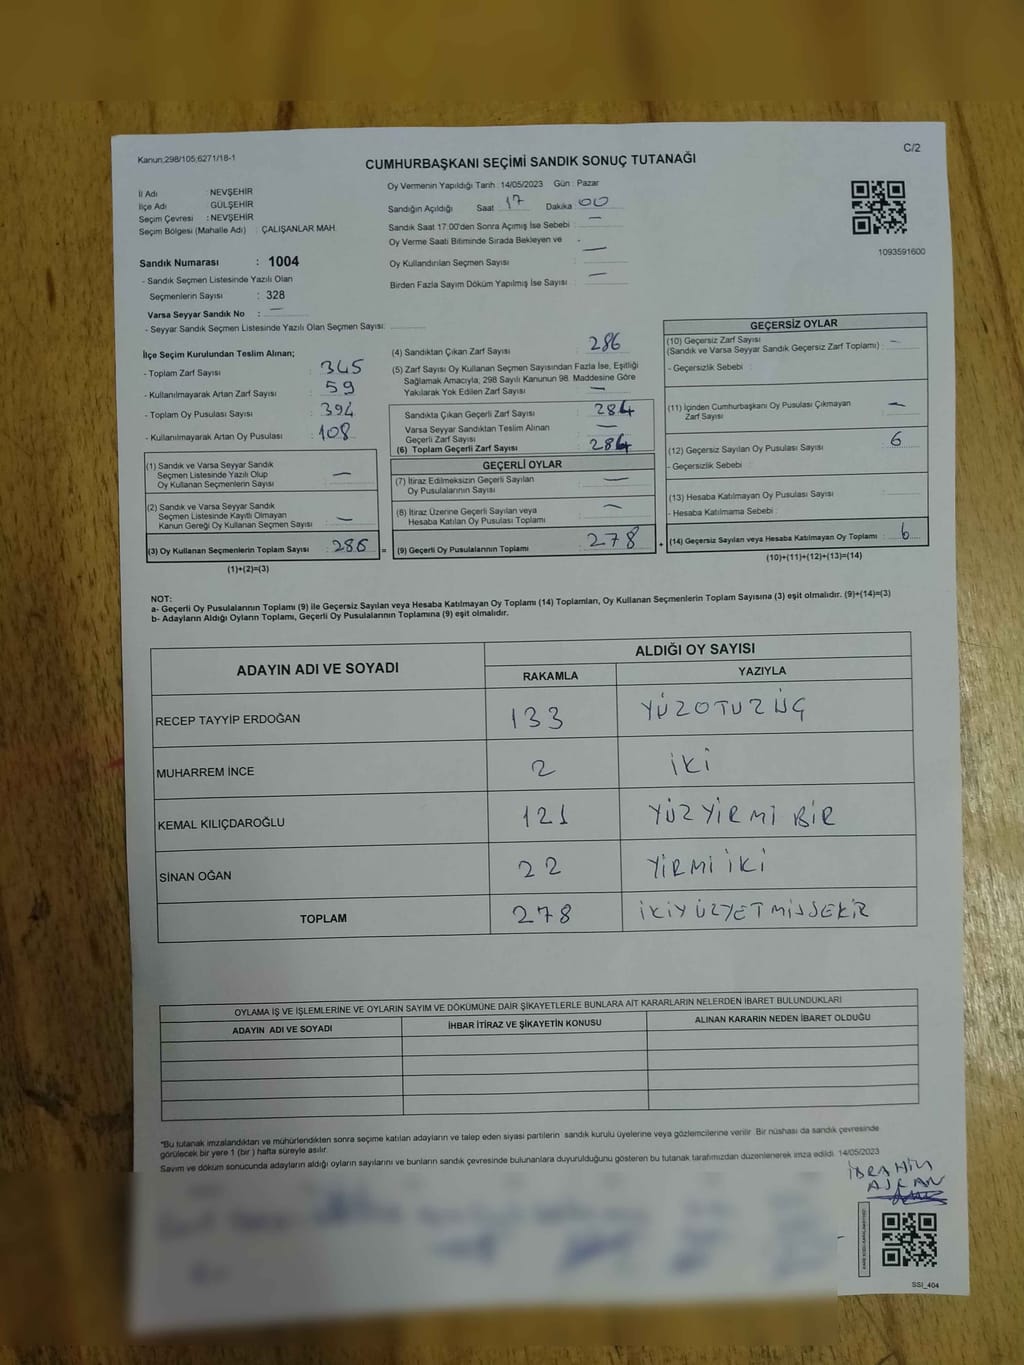 Kanun;298/105;6271/18-1
C/2
CUMHURBAŞKANI SEÇİMİ SANDIK SONUÇ TUTANAĞI
İl Adı : NEVŞEHİR
İlçe Adı : GÜLŞEHİR
Seçim Çevresi : NEVŞEHİR
Seçim Bölgesi (Mahalle Adı) : ÇALIŞANLAR MAH.
Sandık Numarası : 1004
- Sandık Seçmen Listesinde Yazılı Olan
Seçmenlerin Sayısı : 328
Varsa Seyyar Sandık No : —
- Seyyar Sandık Seçmen Listesinde Yazılı Olan Seçmen Sayısı:
Oy Vermenin Yapıldığı Tarih :14/05/2023 Gün : Pazar
Sandığın Açıldığı Saat 17 Dakika 00
Sandık Saat 17:00'den Sonra Açımış İse Sebebi : —
Oy Verme Saati Bitiminde Sırada Bekleyen ve
Oy Kullandırılan Seçmen Sayısı : —
Birden Fazla Sayım Döküm Yapılmış İse Sayısı : —
1093591600
İlçe Seçim Kurulundan Teslim Alınan;
- Toplam Zarf Sayısı : 345
- Kullanılmayarak Artan Zarf Sayısı : 59
- Toplam Oy Pusulası Sayısı : 394
- Kullanılmayarak Artan Oy Pusulası : 108
(1) Sandık ve Varsa Seyyar Sandık
Seçmen Listesinde Yazılı Olup
Oy Kullanan Seçmenlerin Sayısı : —
(2) Sandık ve Varsa Seyyar Sandık
Seçmen Listesinde Kayıtlı Olmayan
Kanun Gereği Oy Kullanan Seçmen Sayısı : —
(3) Oy Kullanan Seçmenlerin Toplam Sayısı : 286 =
(1)+(2)=(3)
(4) Sandıktan Çıkan Zarf Sayısı : 286
(5) Zarf Sayısı Oy Kullanan Seçmen Sayısından Fazla İse, Eşitliği
Sağlamak Amacıyla, 298 Sayılı Kanunun 98. Maddesine Göre
Yakılarak Yok Edilen Zarf Sayısı : —
Sandıkta Çıkan Geçerli Zarf Sayısı : 284
Varsa Seyyar Sandıktan Teslim Alınan
Geçerli Zarf Sayısı : —
(6) Toplam Geçerli Zarf Sayısı : 284
GEÇERLİ OYLAR
(7) İtiraz Edilmeksizin Geçerli Sayılan
Oy Pusulalarının Sayısı : —
(8) İtiraz Üzerine Geçerli Sayılan veya
Hesaba Katılan Oy Pusulası Toplamı : —
(9) Geçerli Oy Pusulalarının Toplamı : 278 +
GEÇERSİZ OYLAR
(10) Geçersiz Zarf Sayısı
(Sandık ve Varsa Seyyar Sandık Geçersiz Zarf Toplamı) : —
- Geçersizlik Sebebi :
(11) İçinden Cumhurbaşkanı Oy Pusulası Çıkmayan
Zarf Sayısı : —
(12) Geçersiz Sayılan Oy Pusulası Sayısı : 6
- Geçersizlik Sebebi :
(13) Hesaba Katılmayan Oy Pusulası Sayısı :
- Hesaba Katılmama Sebebi :
(14) Geçersiz Sayılan veya Hesaba Katılmayan Oy Toplamı : 6
(10)+(11)+(12)+(13)=(14)
NOT:
a- Geçerli Oy Pusulalarının Toplamı (9) ile Geçersiz Sayılan veya Hesaba Katılmayan Oy Toplamı (14) Toplamları, Oy Kullanan Seçmenlerin Toplam Sayısına (3) eşit olmalıdır. (9)+(14)=(3)
b- Adayların Aldığı Oyların Toplamı, Geçerli Oy Pusulalarının Toplamına (9) eşit olmalıdır.
ADAYIN ADI VE SOYADI ALDIĞI OY SAYISI
RAKAMLA YAZIYLA
RECEP TAYYİP ERDOĞAN 133 YÜZOTUZ ÜÇ
MUHARREM İNCE 2 İKİ
KEMAL KILIÇDAROĞLU 121 YÜZ YİRMİ BİR
SİNAN OĞAN 22 YİRMİ İKİ
TOPLAM 278 İKİYÜZYETMİŞSEKİZ
OYLAMA İŞ VE İŞLEMLERİNE VE OYLARIN SAYIM VE DÖKÜMÜNE DAİR ŞİKAYETLERLE BUNLARA AİT KARARLARIN NELERDEN İBARET BULUNDUKLARI
ADAYIN ADI VE SOYADI İHBAR İTİRAZ VE ŞİKAYETİN KONUSU ALINAN KARARIN NEDEN İBARET OLDUĞU
*Bu tutanak imzalandıktan ve mühürlendikten sonra seçime katılan adayların ve talep eden siyasi partilerin sandık kurulu üyelerine veya gözlemcilerine verilir. Bir nüshası da sandık çevresinde
görülecek bir yere 1 (bir) hafta süreyle asılır.
Sayım ve döküm sonucunda adayların aldığı oyların sayılarını ve bunların sandık çevresinde bulunanlara duyurulduğunu gösteren bu tutanak tarafımızdan düzenlenerek imza edildi. 14/05/2023
İBRAHİM
SSI_404